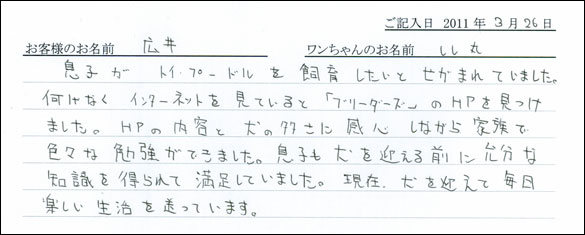 ご記入日 2011年3月26日
お客様のお名前 広井 ワンちゃんのお名前 しし丸
息子が トイ・プードルを 飼育したいと せがまれていました。
何げなく インターネットを見ていると「ブリーダーズ」のHPを見つけ
ました。HPの内容と 犬の多さに 感心 しながら 家族で
色々な 勉強ができました。息子も 犬を迎える前に 充分な
知識を得られて 満足していました。現在、犬を迎えて 毎日
楽しい 生活を送っています。